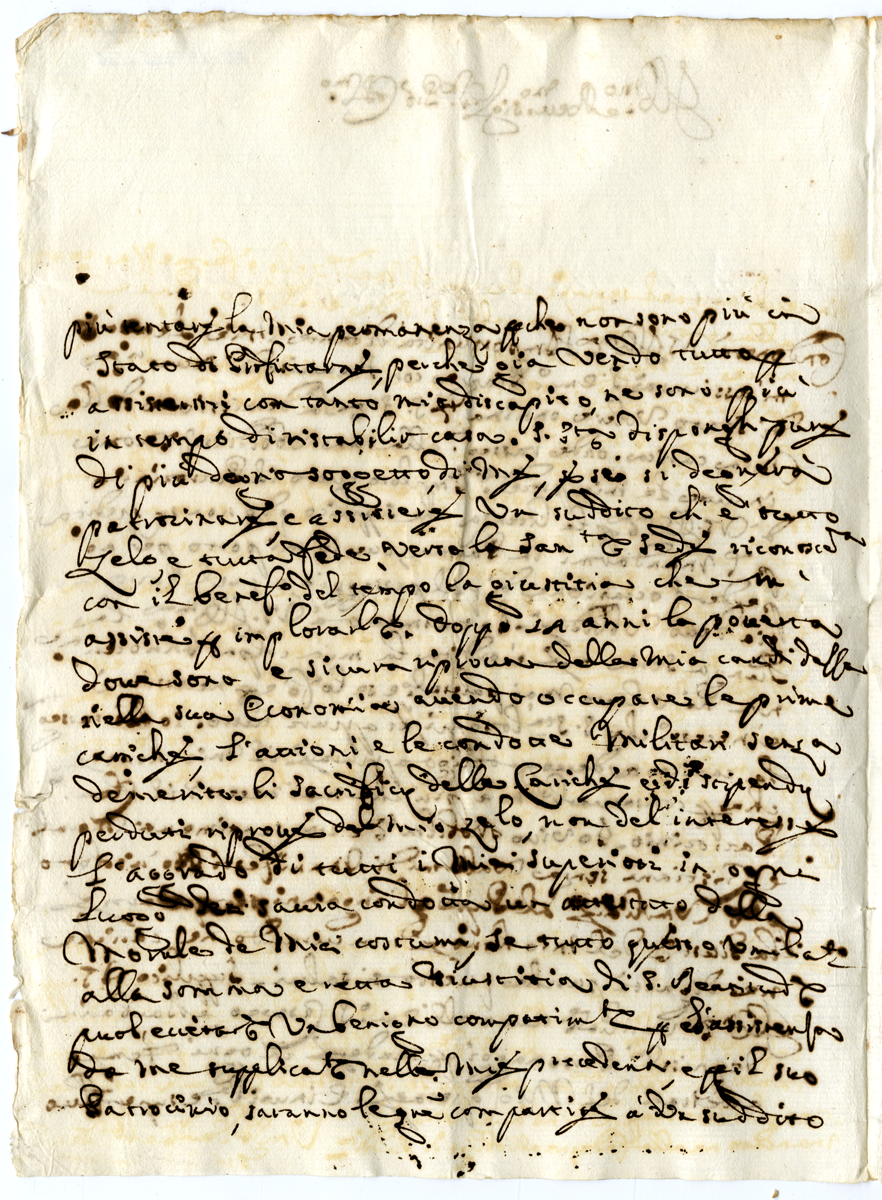 più tentare la mia permanenza p che non sono più in
stato di profittarne, perche già vendo tutto p
assistermi con tanto mio discapito, ne sono più
in tempo di ristabilir casa. S. Stà disponghi pure
di più degno soggetto di me, p se si degnerà
patrocinare e assistere un suddito ch'è tutto
zelo, e tutta fede verso la Santa Sede riconoscerà
con il benefo. del tempo la giustitia che m'
assiste p implorarla. doppo anni la povertà
dove sono e sicura riprova della mia candidezza
nella sua Economia avendo occupate le prime
cariche, l'attioni e le condotte Militari senza
demerito. li sacrificij delle Cariche, e di stipendij
perduti riprove del mio zelo, non del'interesse
l'aggrado di tutti i miei superiori in ogni
luogo savia condotta un attestato della
Morale de miei costumi, se tutto questo umiliato
alla somma e retta Giustitia di S. Beatitudne
puol evitare un benigno compatimto p l'assistenza
da me supplicata nelle mie precedenti, e p il suo
Patrocinio, saranno le gre compartite à un suddito